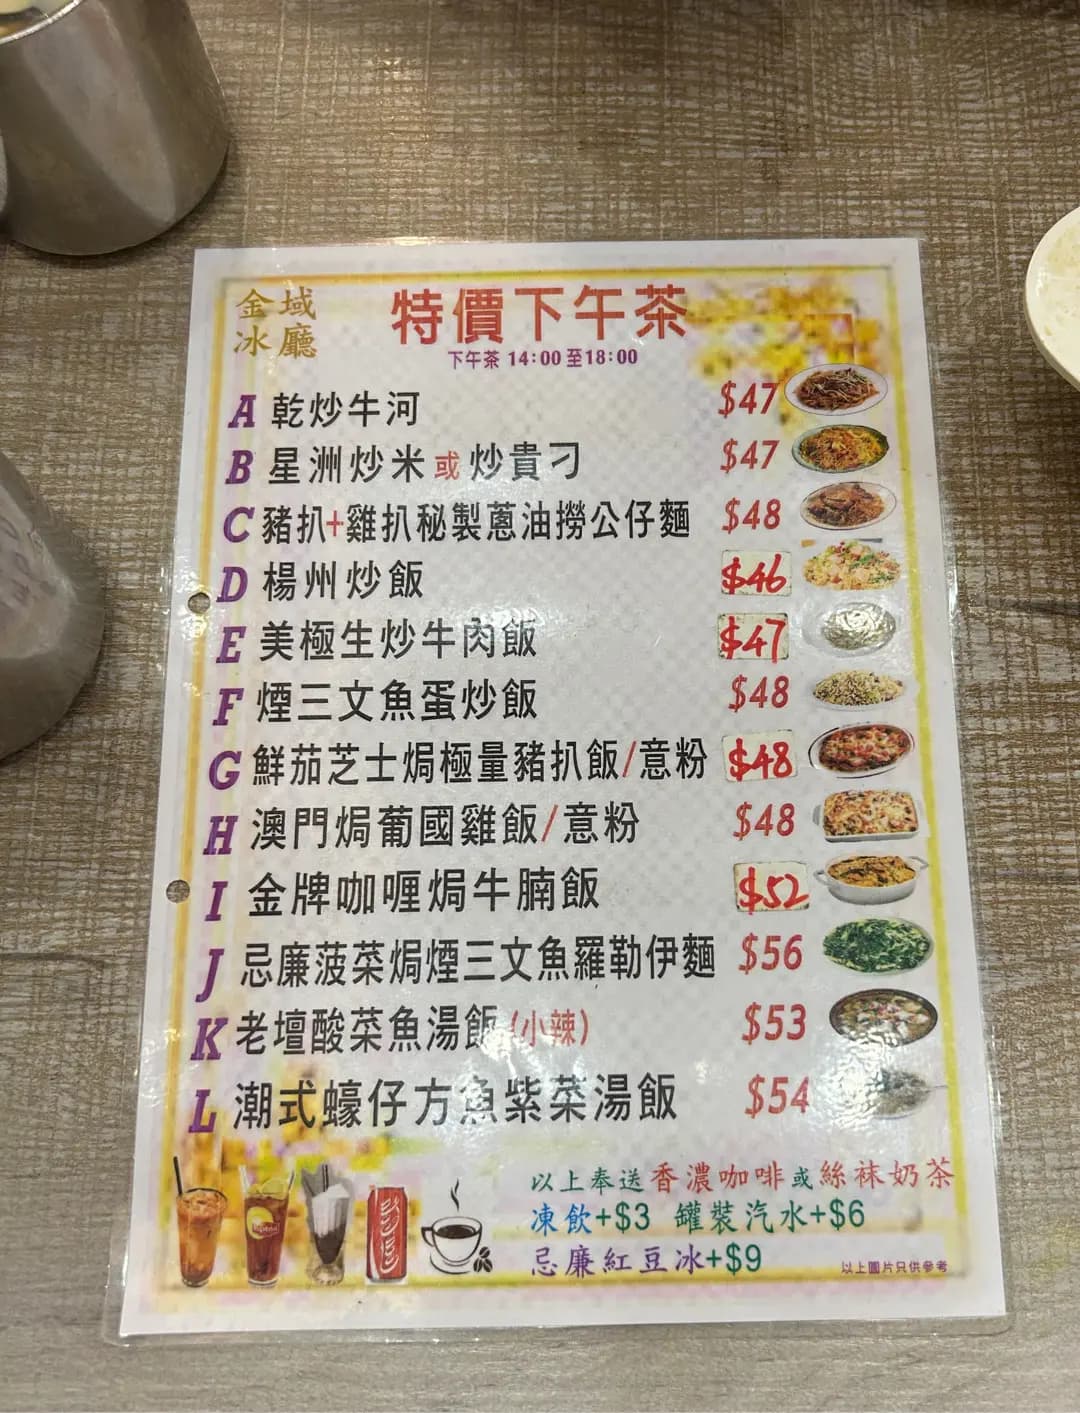 金域
冰廳
特價下午茶
下午茶 14:00至18:00
A 乾炒牛河 $47
B 星洲炒米或炒貴刁 $47
C 豬扒+雞扒秘製蔥油撈公仔麵 $48
D 楊州炒飯 $46
E 美極生炒牛肉飯 $47
F 煙三文魚蛋炒飯 $48
G 鮮茄芝士焗極量豬扒飯/意粉 $48
H 澳門焗葡國雞飯/意粉 $48
I 金牌咖喱焗牛腩飯 $52
J 忌廉菠菜焗煙三文魚羅勒伊麵 $56
K 老壇酸菜魚湯飯(小辣) $53
L 潮式蠔仔方魚紫菜湯飯 $54
以上奉送香濃咖啡或絲襪奶茶
凍飲+$3 罐裝汽水+$6
忌廉紅豆冰+$9
以上圖片只供參考